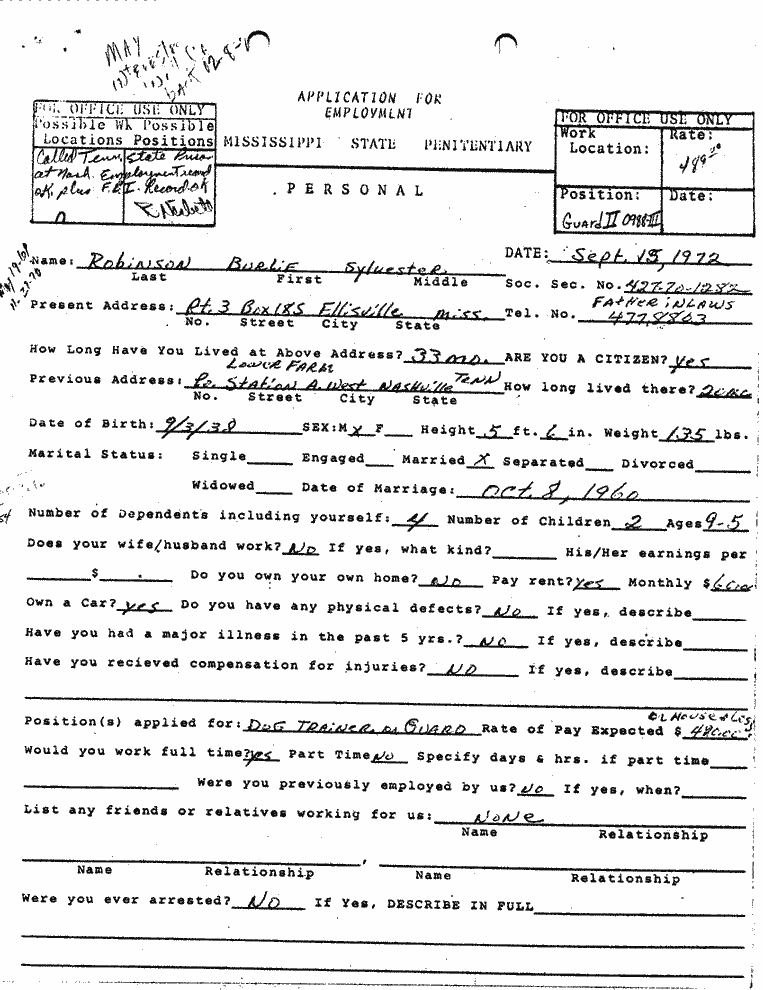 MAY
12-8-
APPLICATION FOR
EMPLOYMENT
MISSISSIPPI STATE PENITENTIARY
PERSONAL
FOR OFFICE USE ONLY
Possible Wk Possible
Locations Positions
Called Tenn. State Prison
at Nash. Employment record
ok, plus F.B.I. Record ok
FOR OFFICE USE ONLY
Work Rate:
Location:
Position: Date:
Guard II 0988-III
DATE: Sept. 15, 1972
Name: Robinson Burlie Sylvester
Last First Middle Soc. Sec. No. 427-70-1282
FATHER INLAWS
Present Address: Rt. 3 Box 185 Ellisville miss. Tel. No. 4778863
No. Street City State
How Long Have You Lived at Above Address? 33 mo. ARE YOU A CITIZEN? yes
LOWER FARM
Previous Address: Po. Station A West Nashville TENN How long lived there?
No. Street City State
Date of Birth: 9/3/38 SEX:M X F Height 5 ft. 6 in. Weight 135 lbs.
Marital Status: Single Engaged Married X Separated Divorced
Widowed Date of Marriage: Oct. 8, 1960
Number of Dependents including yourself: 4 Number of Children 2 Ages 9-5
Does your wife/husband work? No If yes, what kind? His/Her earnings per
$ . Do you own your own home? No Pay rent? yes Monthly $
Own a Car? yes Do you have any physical defects? No If yes, describe
Have you had a major illness in the past 5 yrs.? No If yes, describe
Have you recieved compensation for injuries? NO If yes, describe
Position(s) applied for: DOG TRAINER or GUARD Rate of Pay Expected $ 480.00
Would you work full time? yes Part Time No Specify days & hrs. if part time
Were you previously employed by us? No If yes, when?
List any friends or relatives working for us: NONE
Name Relationship
Name Relationship Name Relationship
Were you ever arrested? No If Yes, DESCRIBE IN FULL